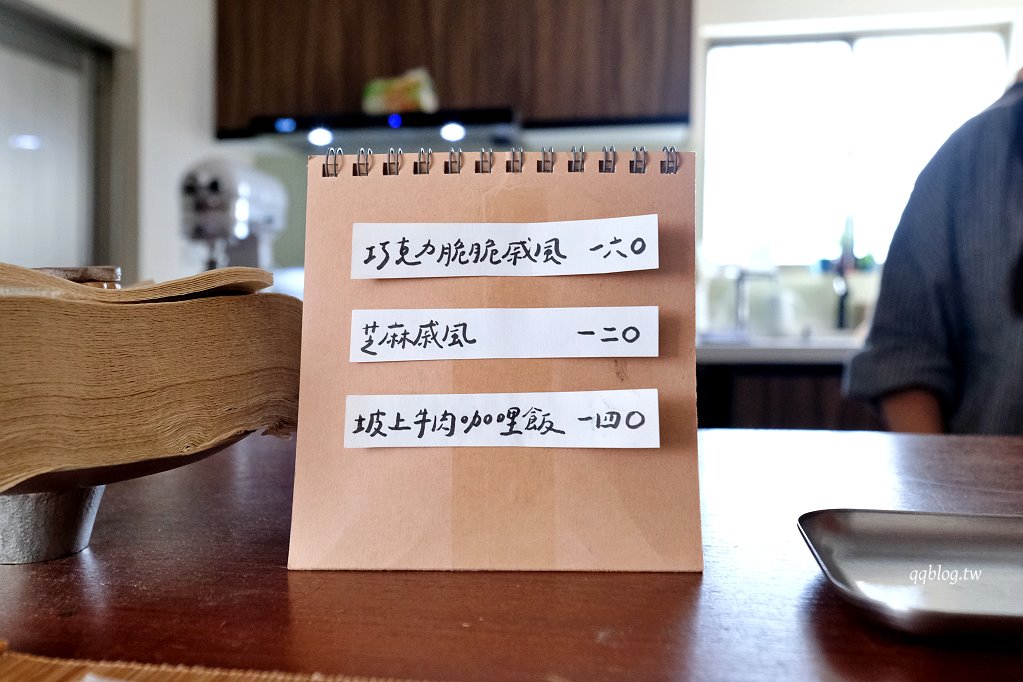 巧克力脆脆戚風 一六〇
芝麻戚風 一二〇
坡上牛肉咖哩飯 一四〇
qqblog.tw